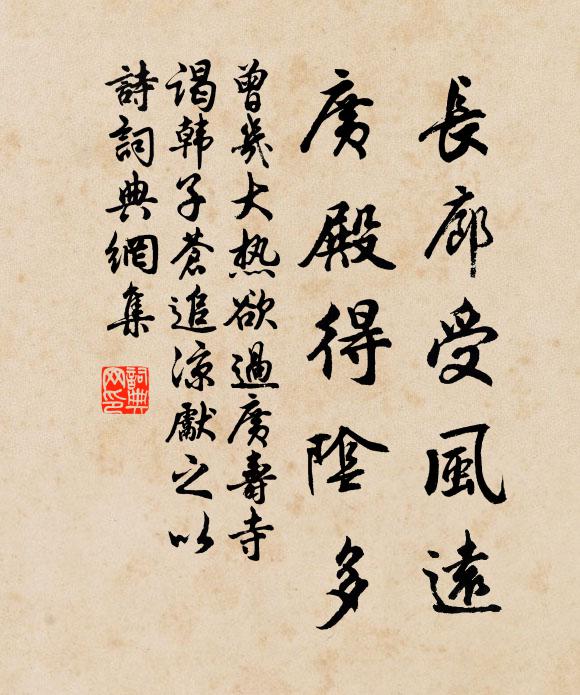 長廊受風遠
廣殿得陰多
曾幾大热欲過廣壽寺
谒韩子蒼追凉獻之以
詩詞典網集
詞典
网印